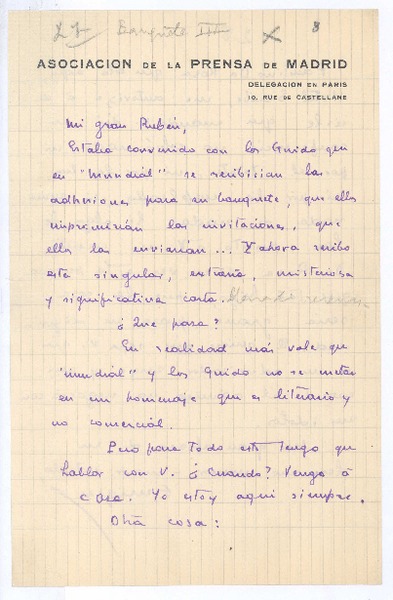 Banquete III
8
ASOCIACION DE LA PRENSA DE MADRID
DELEGACION EN PARIS
10, RUE DE CASTELLANE
Mi gran Rubén,
Estaba convenido con los Guido que
en "Mundial" se recibirian las
adhesiones para su banquete, que ellos
imprimirián las invitaciones, que
ellos las enviarián... Y ahora recibo
esta singular, extraña, misteriosa
y significativa carta.
¿Que pasa?
En realidad más vale que
"Mundial" y los Guido no se metan
en un homenaje que es literario y
no comercial.
Pero para todo esto tengo que
hablar con V. ¿Cuando? Venga á
casa. Yo estoy aqui siempre.
Otra cosa: